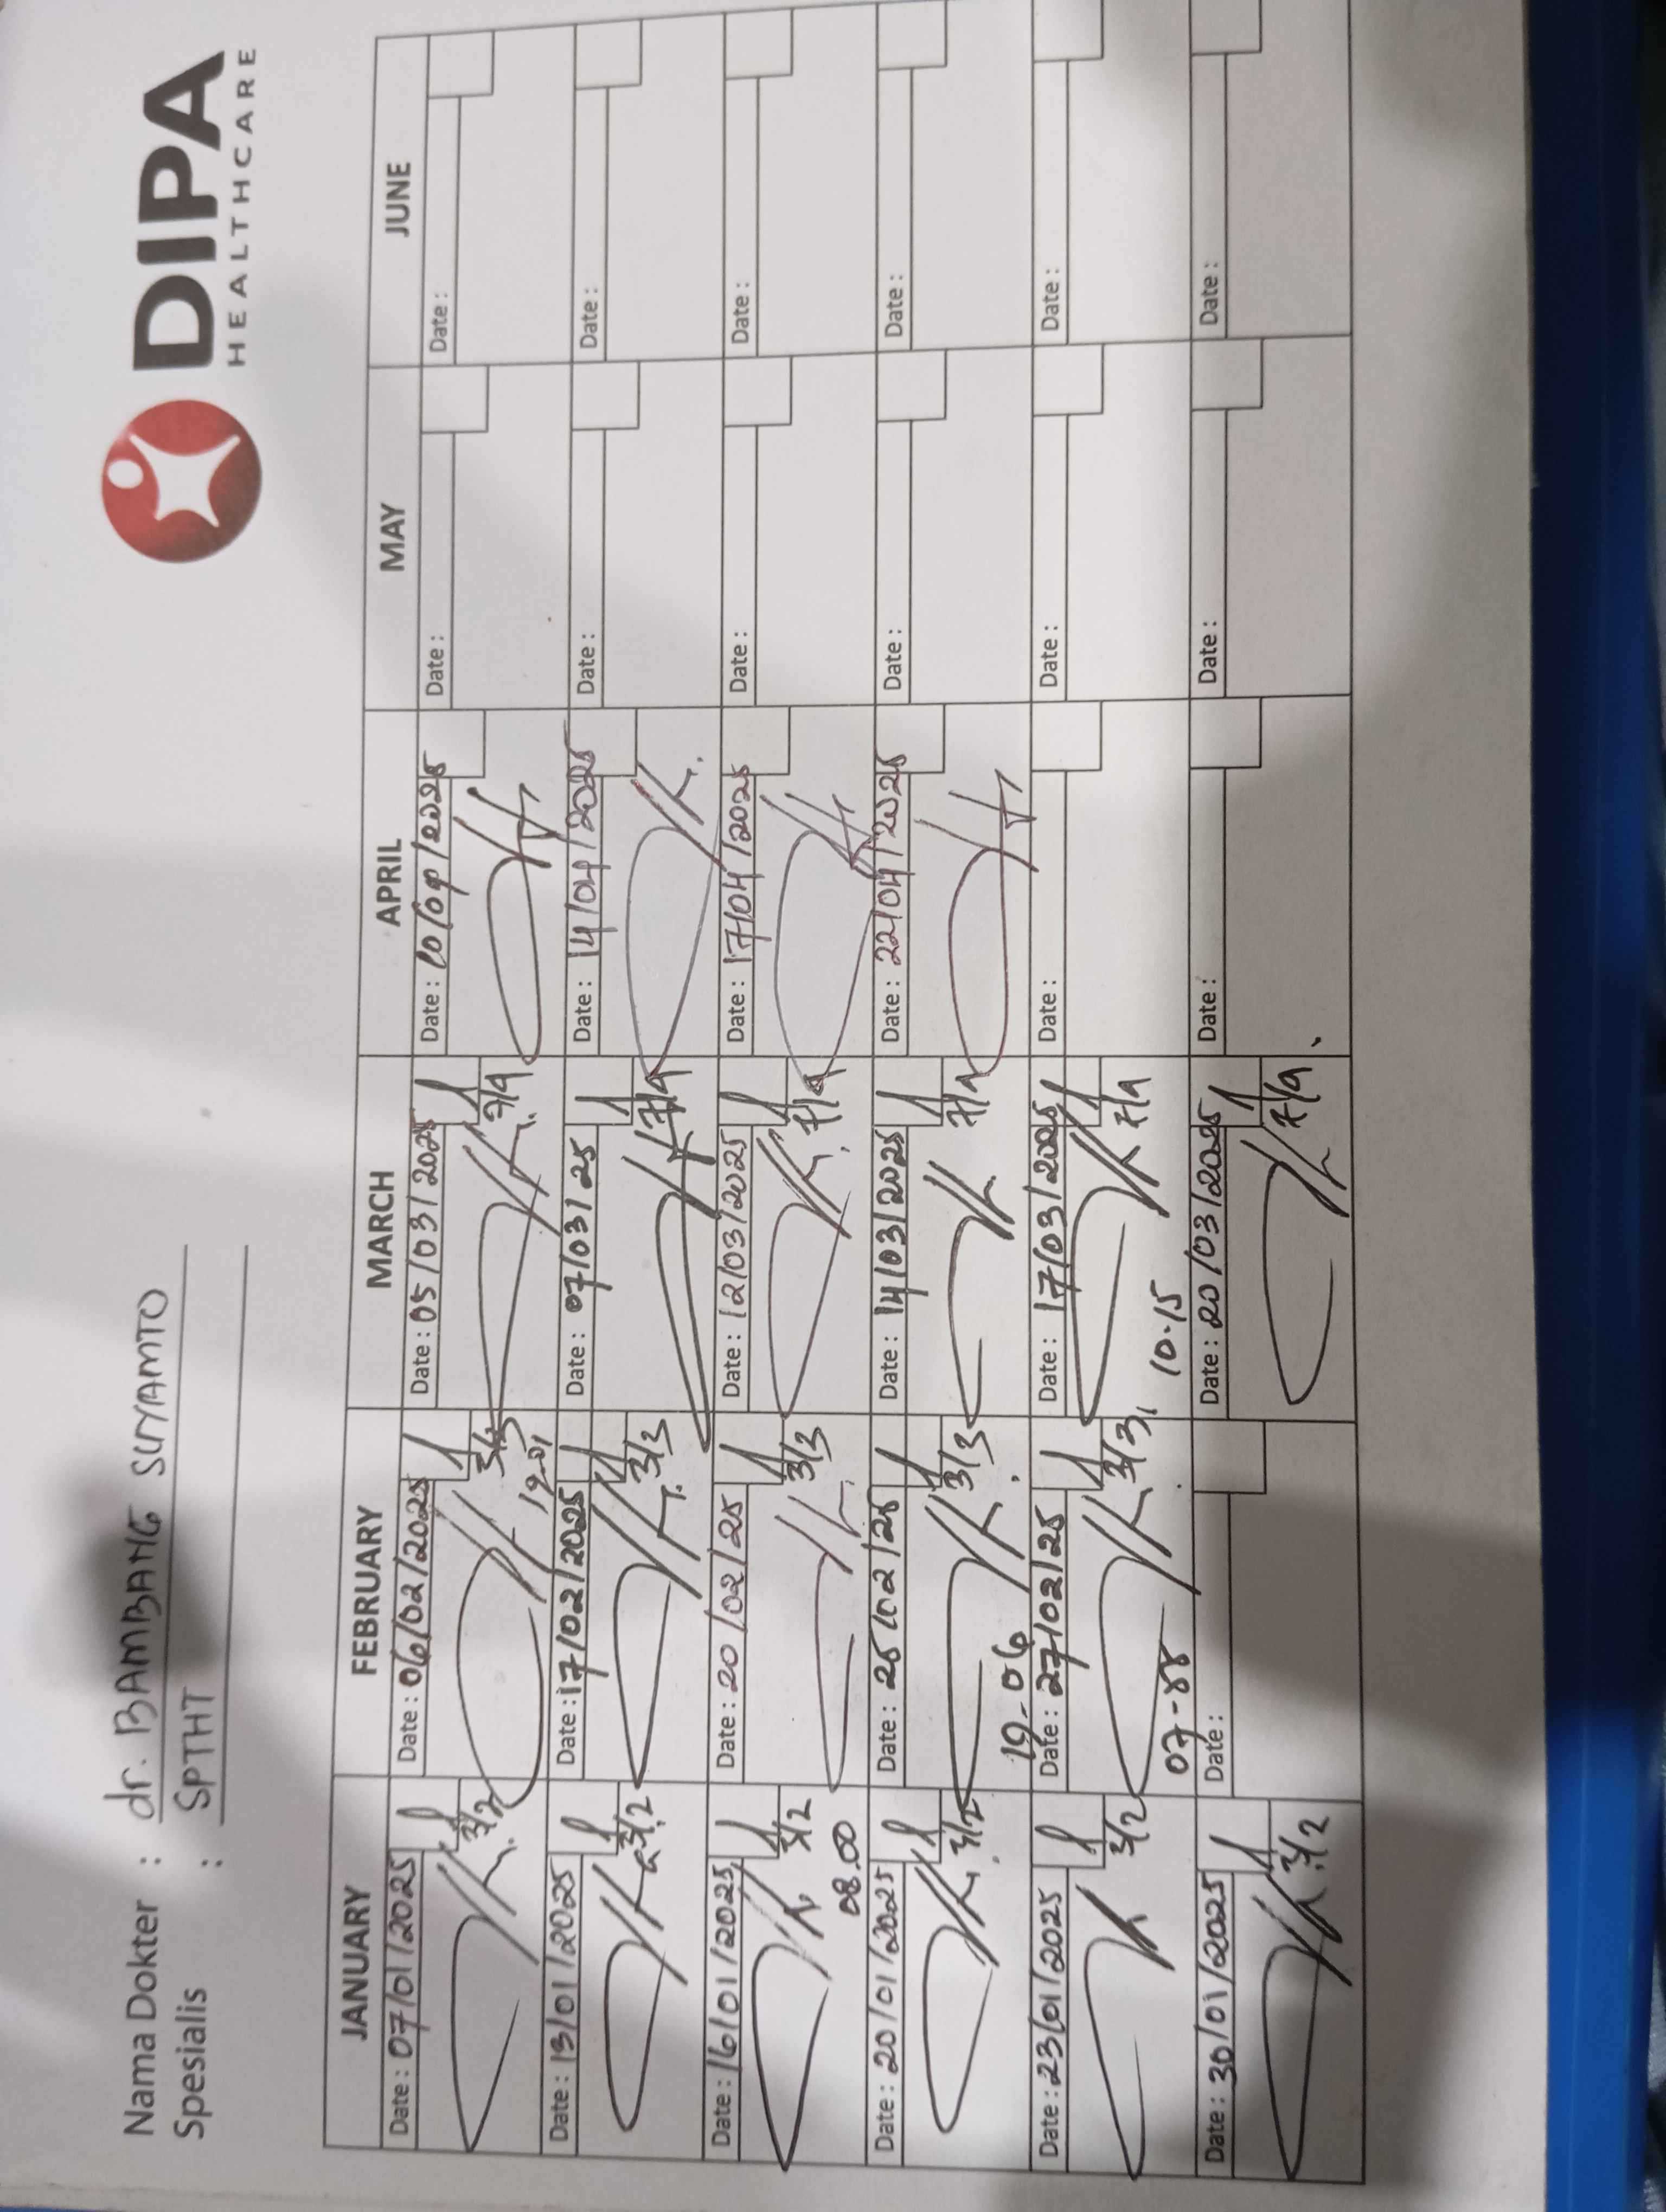 DIPA
HEALTHCARE
Nama Dokter : dr. BAMBANG SURYAMTO
Spesialis : SPTHT
JANUARY FEBRUARY MARCH APRIL MAY JUNE
Date : 07/01/2025 Date : 06/02/2025 Date : 05/03/2025 Date : 10/04/2025 Date : Date :
3/2 3/3 7/4
19.01
Date : 13/01/2025 Date : 17/02/2025 Date : 07/03/25 Date : 14/04/2025 Date : Date :
3/2 3/3 7/4
Date : 16/01/2025 Date : 20/02/25 Date : 12/03/2025 Date : 17/04/2025 Date : Date :
3/2 3/3 7/4
08.00
Date : 20/01/2025 Date : 25/02/25 Date : 14/03/2025 Date : 22/04/2025 Date : Date :
3/2 3/3 7/4
19-06
Date : 23/01/2025 Date : 27/02/25 Date : 17/03/2025 Date : Date : Date :
3/2 3/3 7/4
10.15
Date : 30/01/2025 Date : Date : 20/03/2025 Date : Date : Date :
3/2 7/4